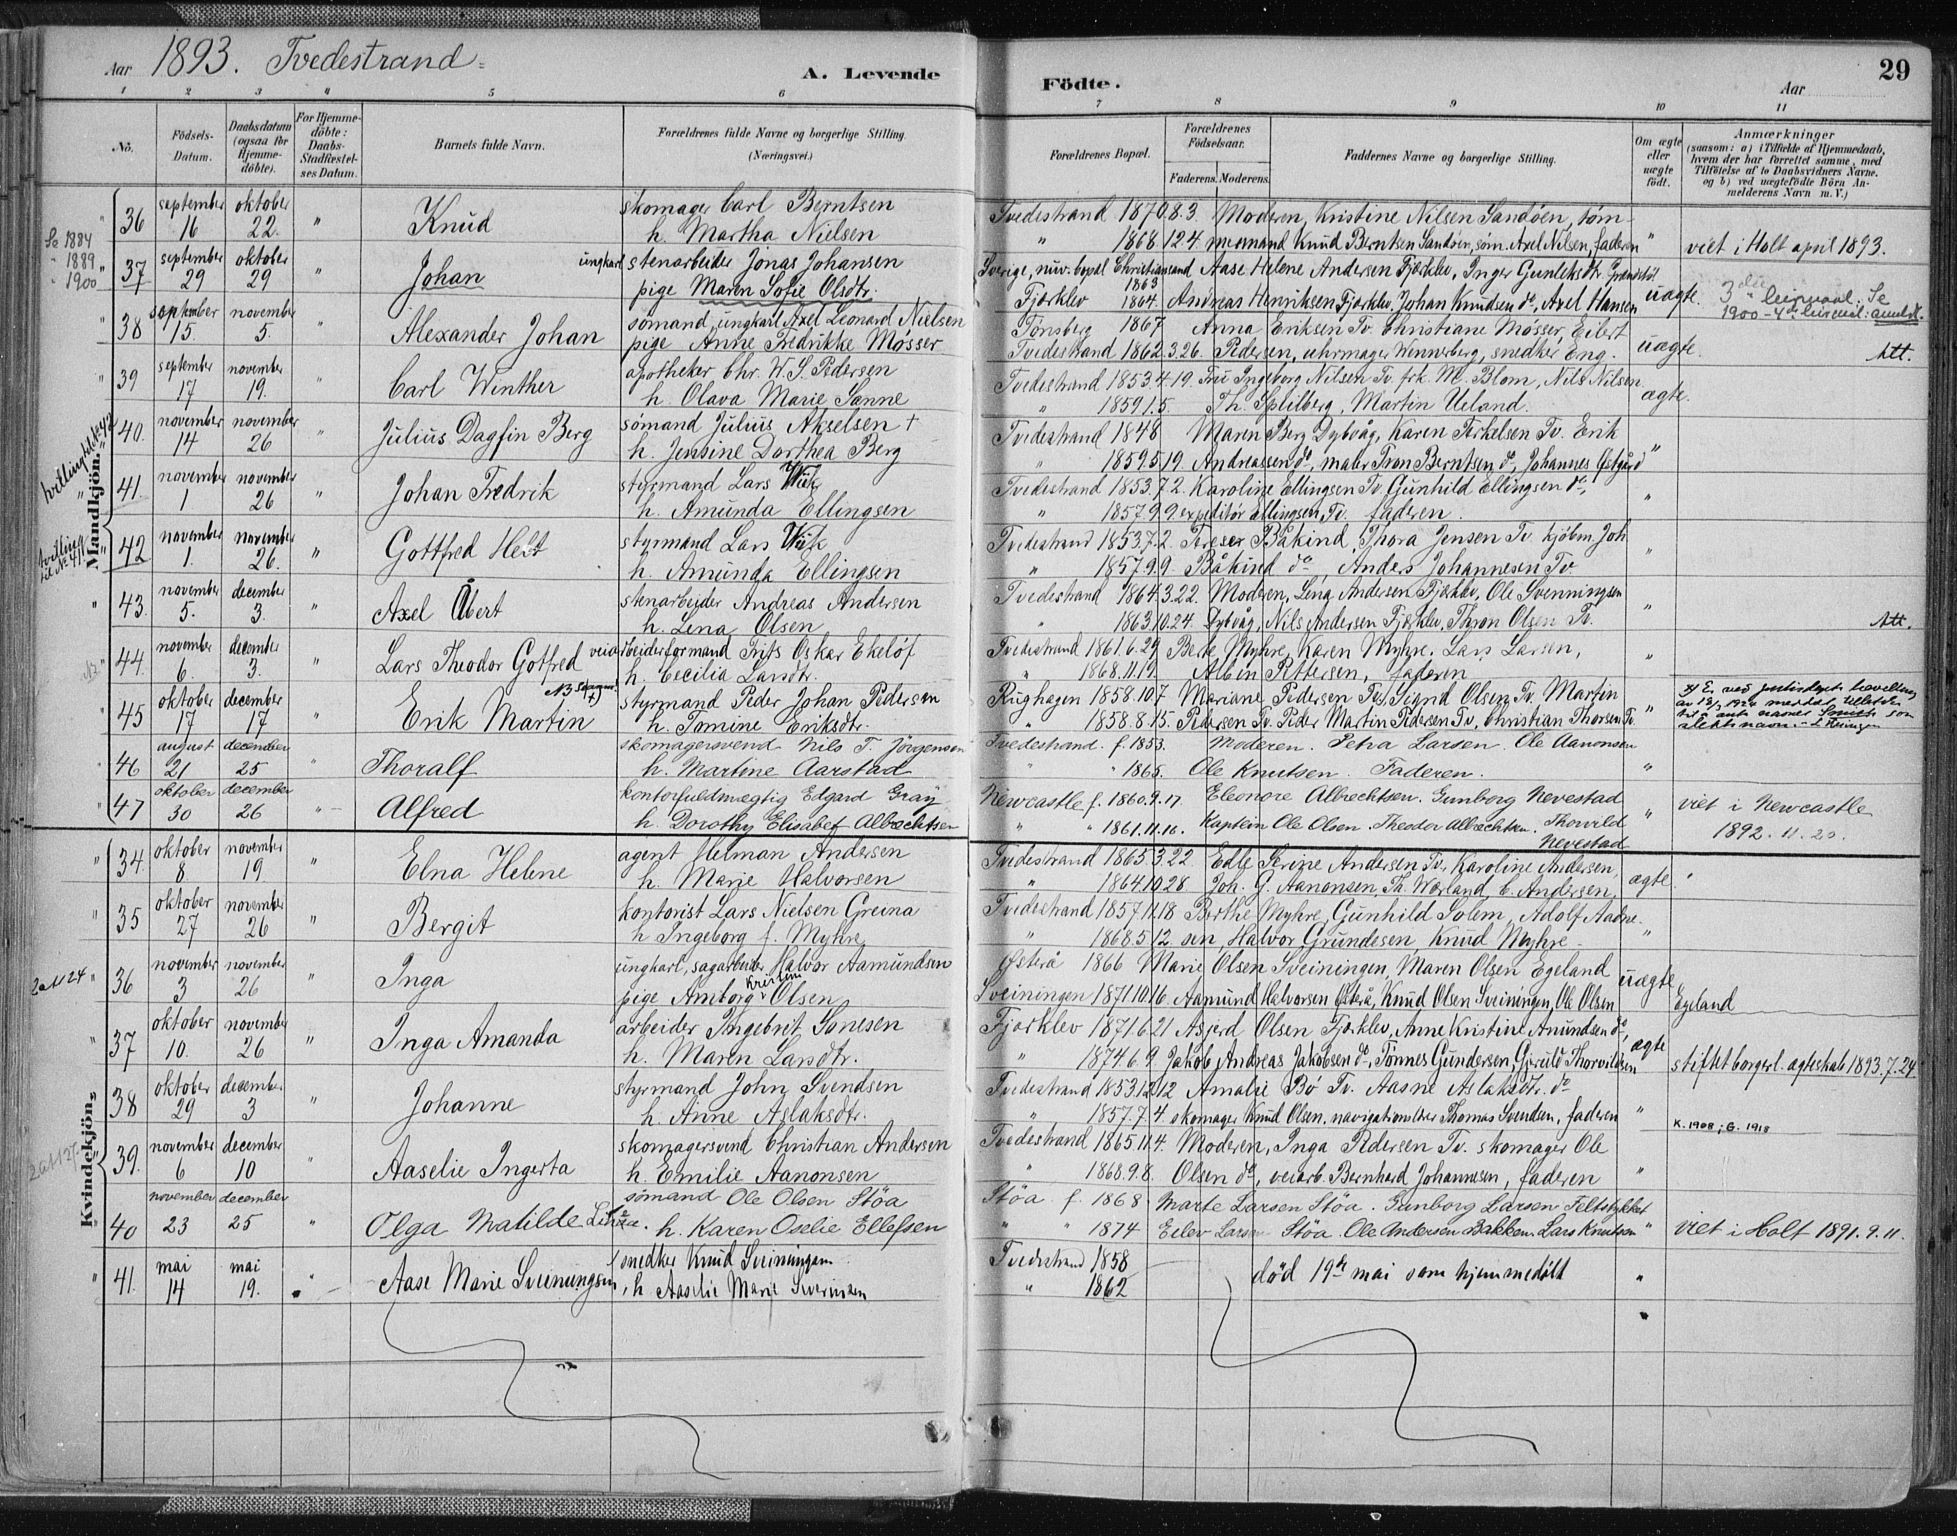 Aar 1893. Tvedestrand
A. Levende Födte.
Aar
29
1 2 3 4 5 6 7 8 9 10 11
No.
Födsels-Datum.
Daabsdatum (ogsaa for Hjemme-döbte).
For Hjemme-döbte: Daabs-Stadfæstel-ses Datum.
Barnets fulde Navn.
Forældrenes fulde Navne og borgerlige Stilling. (Næringsvei.)
Forældrenes Bopæl.
Forældrenes Födselsaar.
Faderens. Moderens.
Faddernes Navne og borgerlige Stilling.
Om ægte eller uægte födt.
Anmærkninger
(saasom: a) i Tilfælde af Hjemmedaab, hvem der har forrettet samme, med Tilföielse af to Daabsvidners Navne. og b) ved uægtefödte Börn Anmelderens Navn m. V.)
Mandkjön.
36 september 16 oktober 22. " Knud
skomager Carl Berntsen
h. Martha Nielsen
Tvedestrand 1870.8.3. Moderen, Kristine Nilsen Sandöen, töm-
" 1868.12.4 mermand Knud Berntsen Sandöen, söm. Axel Nilsen, faderen " viet i Holt april 1893.
Se 1884
" 1889
" 1900
37 september 29 oktober 29 " Johan
ungkarl stenarbeider Jonas Johansen
pige Maren Sofie Olsdtr.
Sverige, nuv. bopæl Christiansand 1863 Aase Helene Andersen Fjærklev, Inger Gunleksdtr
Fjærklev 1864. Andreas Henriksen Fjærklev, Johan Knudsen do, Axel Hansen uægte. 3die leiermaal: Se
1900 - 4de leiermaal: anmeldt.
38 september 15. november 5. " Alexander Johan
sömand, ungkarl Axel Leonard Nielsen
pige Anne Fredrikke Mösser
Tönsberg 1867 Anna Eriksen Tv. Christiane Mösser, Eibert
Tvedestrand 1862.3.26. Pedersen, uhrmager Wennerberg, snedker Eng. uægte. Att.
39 september 17 november 19. " Carl Winther
apotheker Chr. W. S. Pedersen
h. Olava Marie Sanne
Tvedestrand 1853.4.19. Fru Ingeborg Nilsen Tv. frk. M. Blom, Nils Nilsen
" 1859.1.5. Th. Splilberg, Martin Ueland. ægte.
40. november 14 november 26 " Julius Dagfin Berg
sömand Julius Akselsen +
h. Jensine Dorthea Berg
Tvedestrand 1848 Maren Berg Dybvåg, Karen Terkelsen Tv. Erik
" 1859.5.19. Andreassen do, maler Tron Berntsen do, Johannes "
tvilling til No 42
41. november 1 november 26 " Johan Fredrik
styrmand Lars Wiik
h. Amunda Ellingsen
Tvedestrand 1853.7.2. Karoline Ellingsen Tv. Gunhild Ellingsen do,
" 1857.9.9. expeditör Ellingsen, Tv. faderen. "
tvilling til No 41.
42 november 1. november 26. " Gottfred
styrmand Lars Wiik
h. Amunda Ellingsen
Tvedestrand 1853.7.2. Båkind, Thora Jensen Tv. kjöbm. Joh.
" 1857.9.9. Båkind do, Anders Johannesen Tv. "
43. november 5. december 3. " Axel Åbert
stenarbeider Andreas Andersen
h. Lena Olsen
Tvedestrand 1864.3.22. Moderen, Lena Andersen Fjærklev, Ole Svenningsen
" 1863.10.24. Dybvåg, Nils Andersen Fjærklev, Thron Olsen Tv. " Att.
44. november 6. december 3. " Lars Theodor Gotfred
veiarbeiderformand Frits Oskar Ekelöf
h. Cecilia Larsdtr.
Tvedestrand 1861.6.29 Berte Myhre, Karen Myhre, Lars Larsen,
" 1868.11.19. Albin Pettersen, faderen "
45 oktober 17 december 17 " Erik Martin
styrmand Peder Johan Pedersen
h. Tomine Eriksdtr.
Rughagen 1858.10.7 Mariane Pedersen Tv, Signd Olsen Tv. Martin
" 1858.8.15. Pedersen Tv. Peder Martin Pedersen Tv, Christian Thorsen Tv. "
46 august 21 december 25 " Thoralf
skomagersvend Nils T. Jörgensen
h. Martine Aarstad
Tvedestrand. f. 1853. Moderen. Petra Larsen. Ole Aanonsen
" " 1865. Ole Knutsen. Faderen. "
47 oktober 30 december 26 " Alfred
kontorfuldmægtig Edgard Gray
h. Dorothy Elisabet Albrechtsen
Newcastle f. 1860.9.17. Eleonore Albrechtsen. Gunborg Nevestad
" " 1861.11.16. Kaptein Ole Olsen. Theodor Albrechtsen. Thorvild Nevestad " viet i Newcastle
1892.11.20.
Kvindekjön.
34. oktober 8 november 19 " Elna Helene
agent Herman Andersen
h. Marie Halvorsen
Tvedestrand 1865.3.22. Edle Serine Andersen Tv, Karoline Andersen,
" 1864.10.28. Joh. G. Aanonsen, Th. Wærland, C. Andersen, ægte
35 oktober 27 november 26 " Bergit
kontorist Lars Nielsen Greina
h Ingeborg f. Myhre
Tvedestrand 1857.11.18 Berthe Myhre, Gunhild Solem, Adolf Aadne-
" 1868.5.12. sen, Halvor Grundesen, Knud Myhre "
36 november 3 november 26 " Inga
ungkarl, sagarbeider Halvor Aamundsen
pige Amborg Kristine Olsen
Österå 1866 Marie Olsen Sveiningen, Maren Olsen Egeland
Sveiningen 1871.10.16. Aamund Halvorsen Österå, Knud Olsen Sveiningen, Ole Olsen uægte Egeland
37 oktober 10. november 26 " Inga Amanda
arbeider Ingebret Sonesen
h. Maren Larsdtr.
Fjærklev 1871.6.21 Asjerd Olsen Fjærklev, Anne Kristine Amundsen do,
" 1874.6.9 Jakob Andreas Jakobsen do, Tönnes Gundersen, Gjeruld Thorvildsen ægte stiftet borgerl. ægteskab 1893.7.24.
38 oktober 29 december 3 " Johanne
styrmand John Svendsen
h. Anne Aslaksdtr.
Tvedestrand 1853.12.12 Amalie Bö Tv. Aasne Aslaksdtr. do
" 1857.7.4. skomager Knud Olsen, navigationslærer Thomas Svendsen, faderen " K. 1908; G. 1918
39. november 6 december 10 " Aaselie Ingerta
skomagersvend Christian Andersen
h. Emilie Aanonsen
Tvedestrand 1865.11.4. Moderen, Inga Pedersen Tv. skomager Ole
" 1868.9.8. Olsen do, veiarb. Bernhard Johannesen, faderen "
40 november 23 december 25 " Olga Matilde
sömand Ole Olsen Stöa
h. Karen Oselie Ellefsen
Stöa f. 1868 Marte Larsen Stöa. Gunborg Larsen Feltstykket
" " 1874 Eilev Larsen Stöa. Ole Andersen Bakken. Lars Knutsen " viet i Holt 1891.9.11.
41. mai 14 mai 19. " Aase Marie Sveinungsen
snedker Knud Sveinungsen
h Aaselie Marie Severinsen
Tvedestrand 1858
" 1862 död 19de mai som hjemmedöbt "